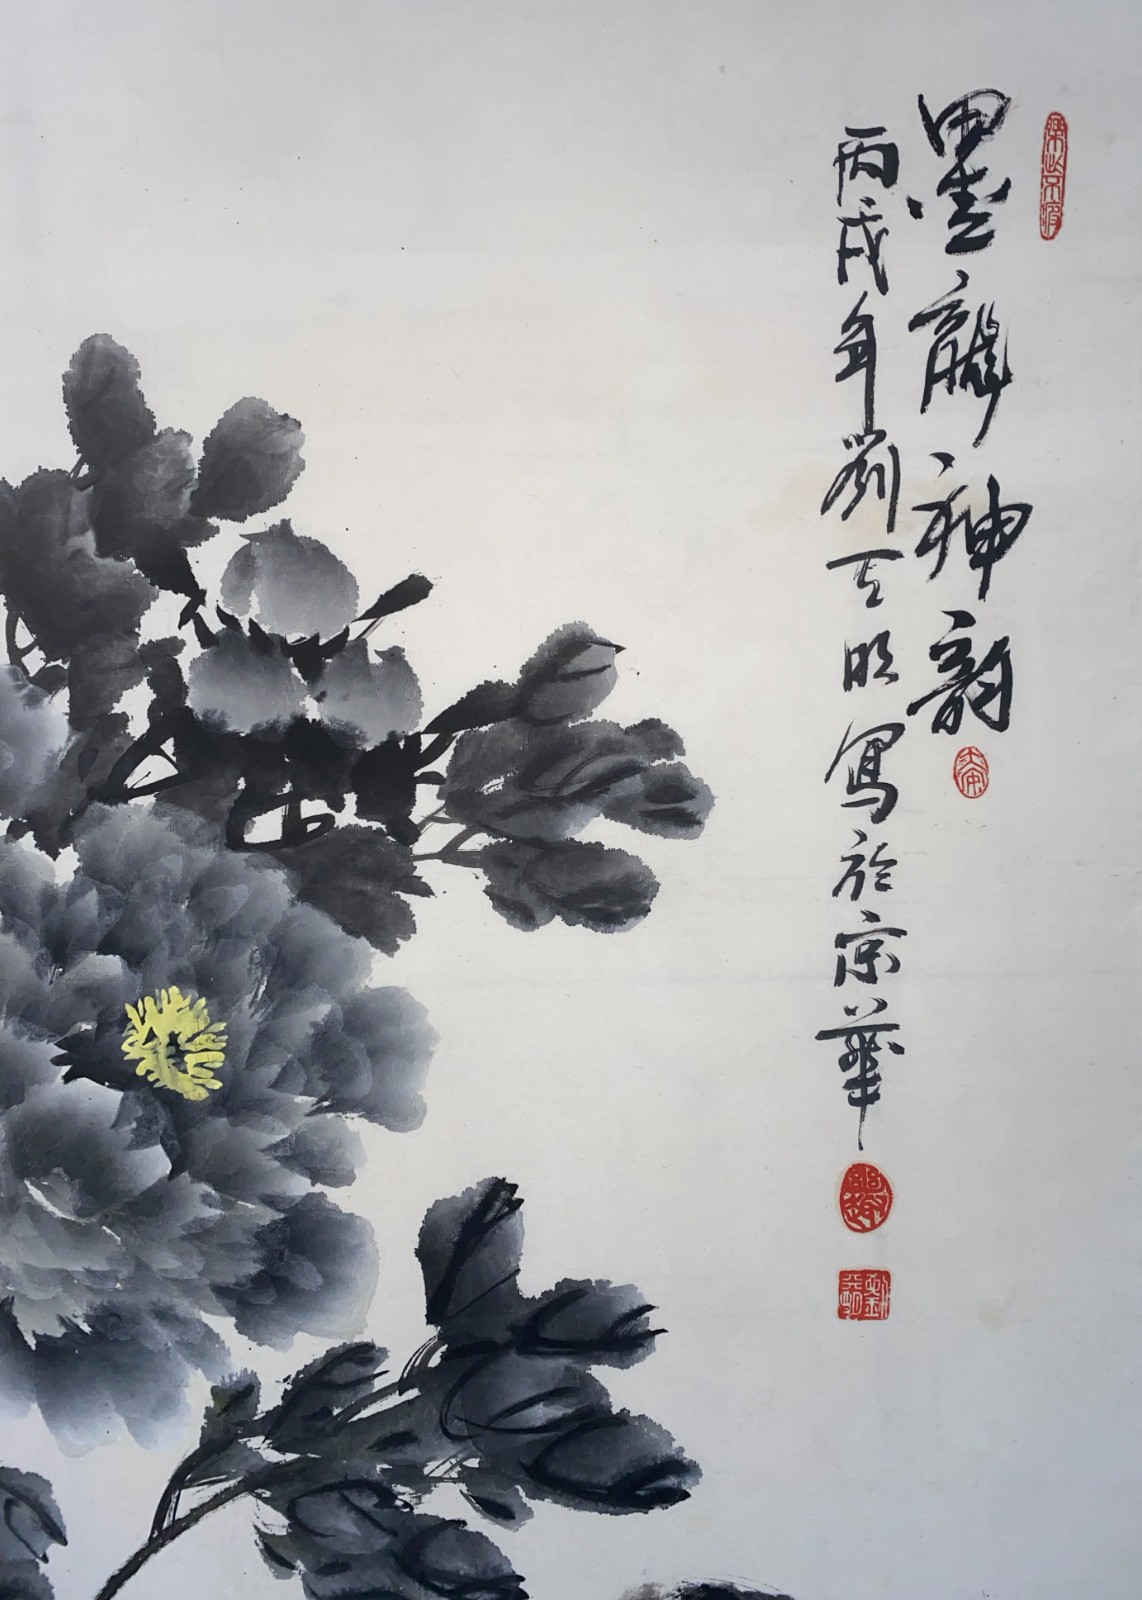 墨龍神韻
丙戌年劉天明寫於京華